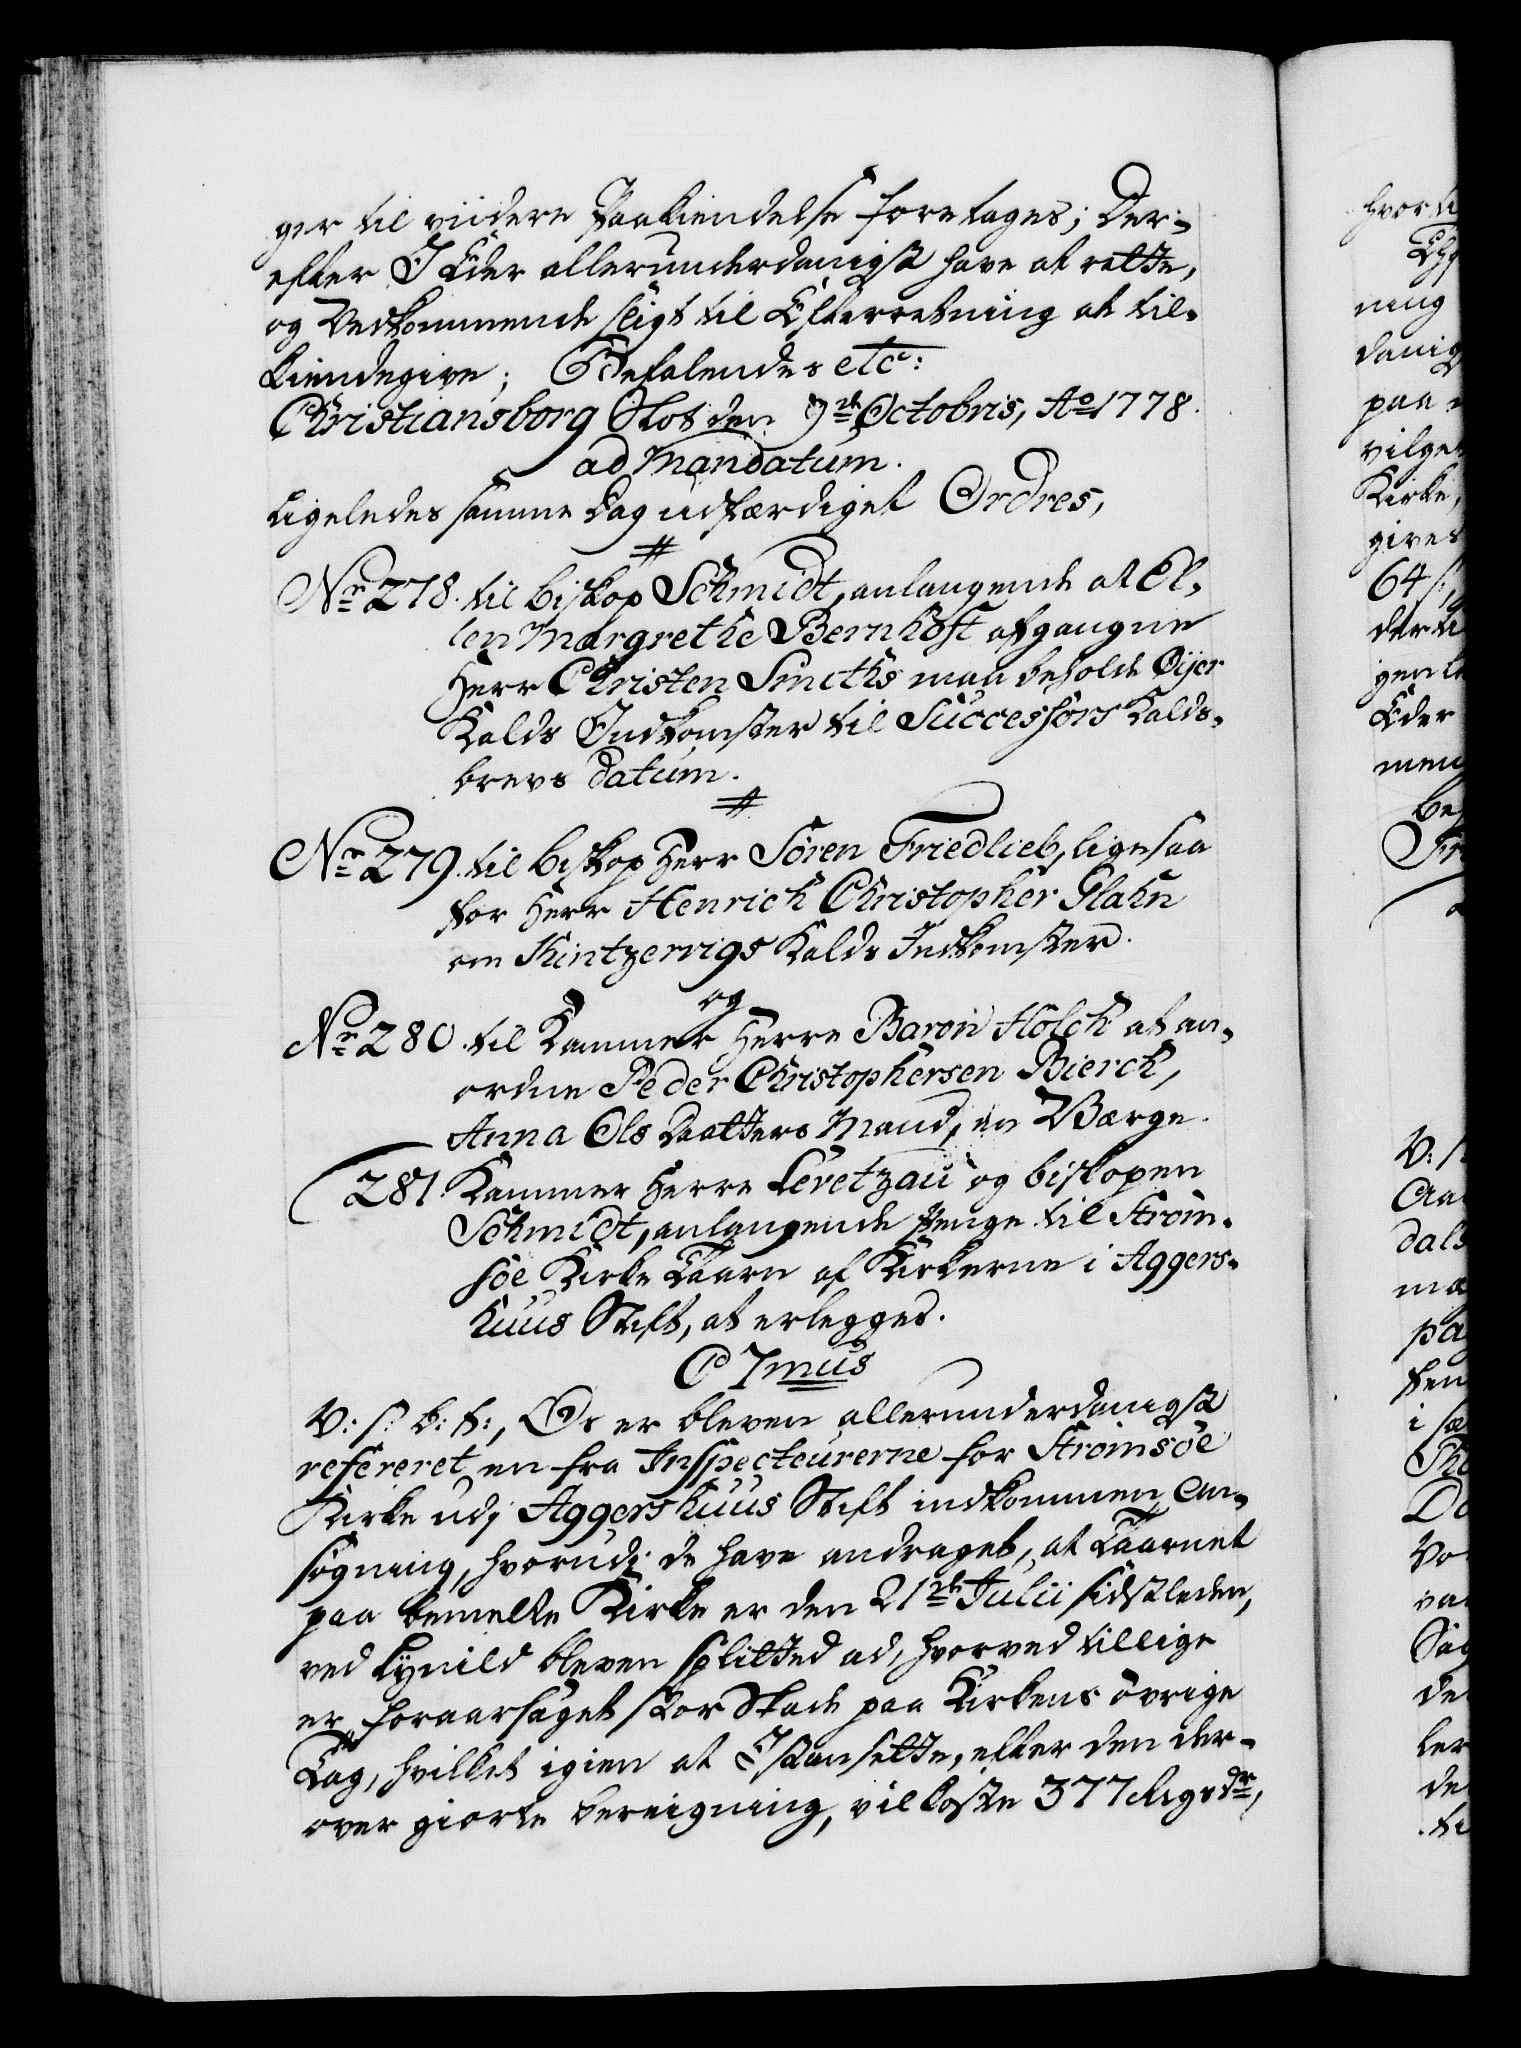 ger til viidere Paakiendelse foretages; Der-
efter I Eder allerunderdanigst have at rette,
og Vedkommende sligt til Efterretning at til-
kiendegive; Befalendes etc:
Christiansborg Slot den 9de Octobris, Ao 1778.
ad Mandatum.
Ligeledes samme Dag udfærdiget Ordres,
Nr 278. til Biskop Schmidt, anlangende at El-
len Margrethe Bernhoft afgangne
Herr Christen Smiths maa beholde Øijer
Kalds Indkomster til Successors Kalds-
brevs datum.
Nr 279. til Biskop Herr Søren Friedlieb, ligesaa
for Herr Henrich Christopher Glahn
om Kintzervigs Kalds Indkomster.
og
Nr 280. til Kammer Herre Baron Holck at an-
ordne Peder Christophersen Bierch,
Anna Ols Daatters Mand, en Værge.
281. Kammer Herre Levetzau og Biskopen
Schmidt, anlangende Penge til Strøm-
søe Kirke Taarn af Kirkerne i Aggers-
huus Stift, at erlegges.
C 7mus
V: s: b: t:, Os er bleven allerunderdanigst
refereret en fra Inspecteurerne for Strømsøe
Kirke udj Aggershuus Stift indkommen An-
søgning, hvorudj de have andraget, at Taarnet
paa bemelte Kirke er den 21de Julii sidstleden,
ved Lynild bleven splitted ad, hvorved tillige
er foraarsaget stor Skade paa Kirkens øvrige
Tag, hvilket igien at Istansette, efter den der-
over giorte Beregning, vil koste 377 Rigsdr,